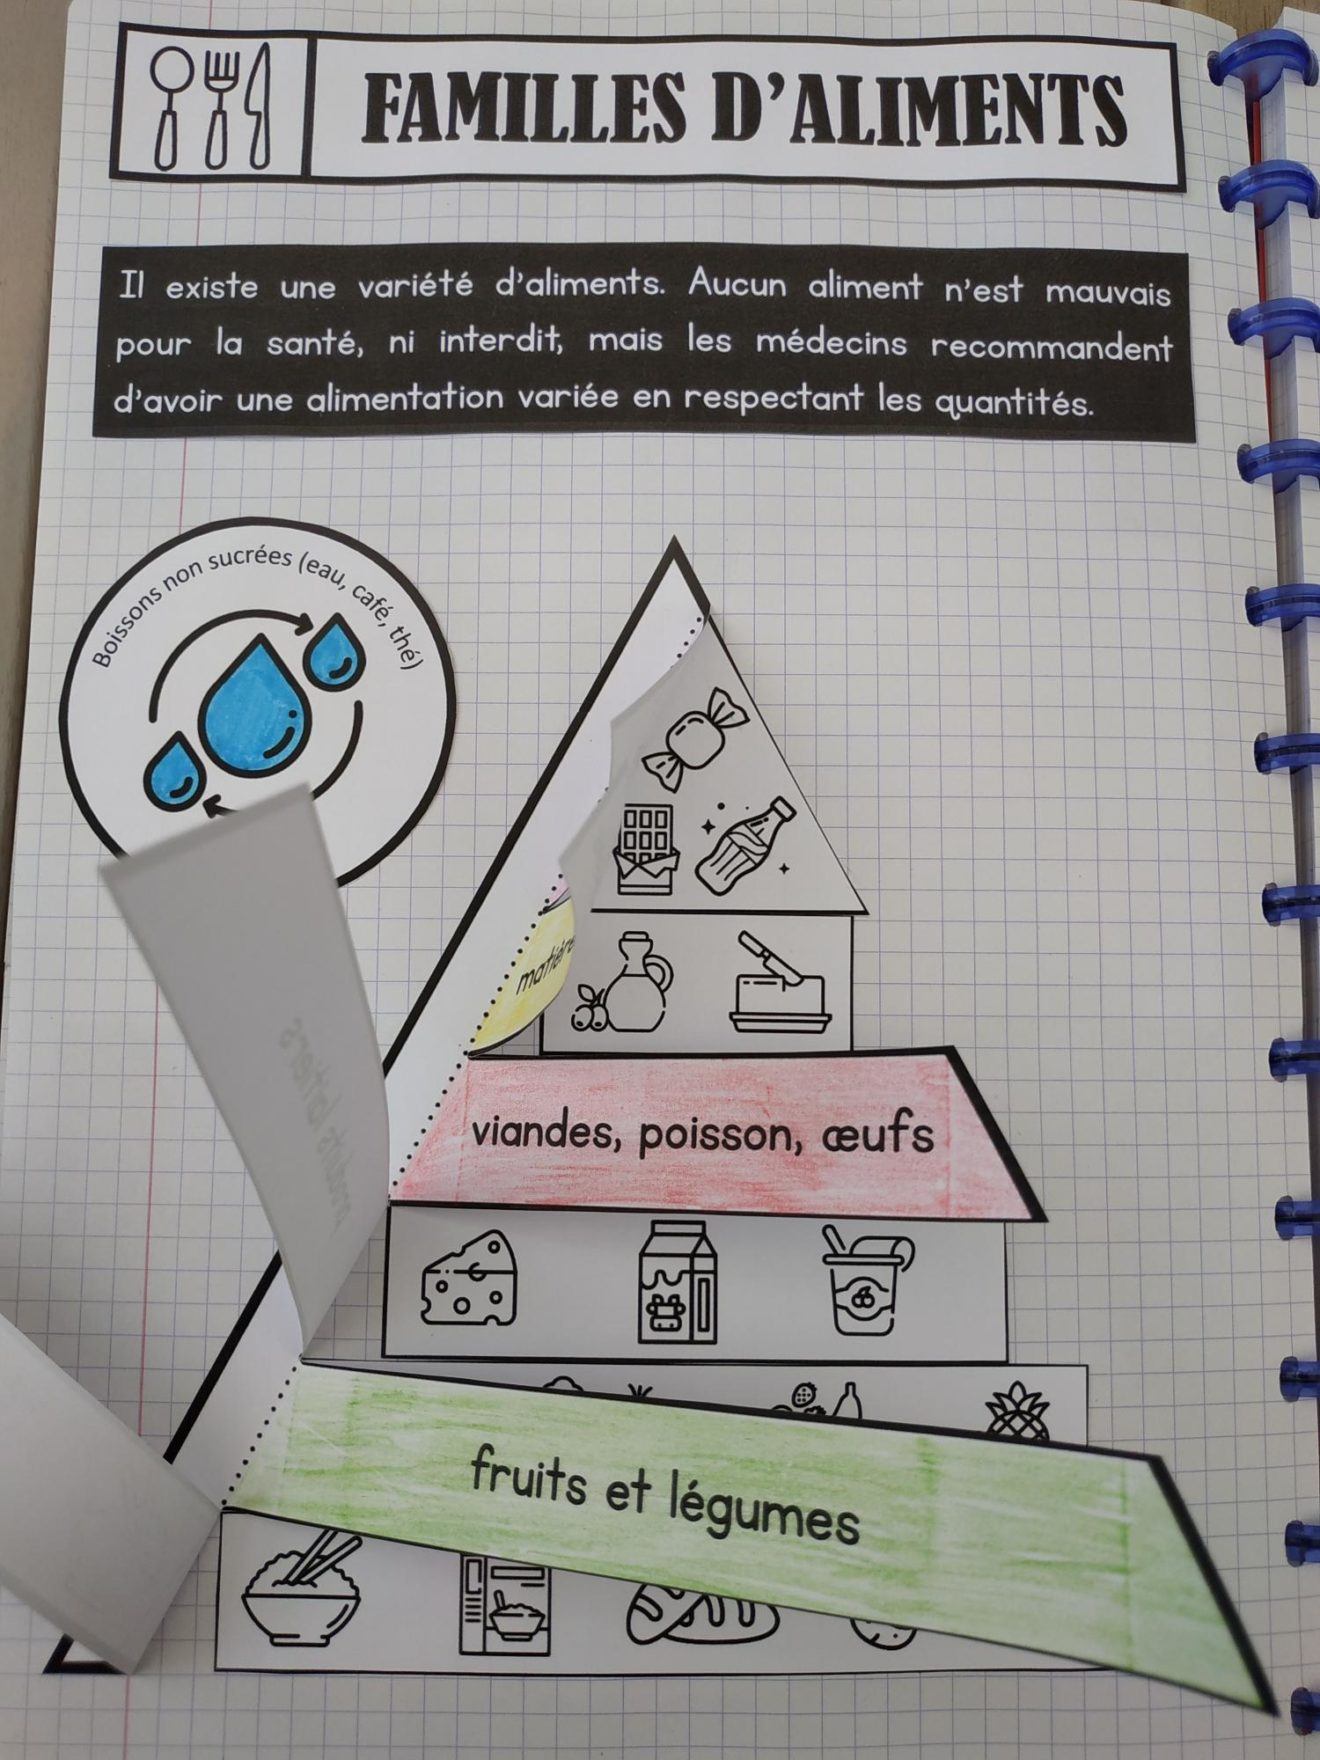 FAMILLES D'ALIMENTS
Il existe une variété d'aliments. Aucun aliment n'est mauvais
pour la santé, ni interdit, mais les médecins recommandent
d'avoir une alimentation variée en respectant les quantités.
Boissons non sucrées (eau, café, thé)
viandes, poisson, œufs
fruits et légumes